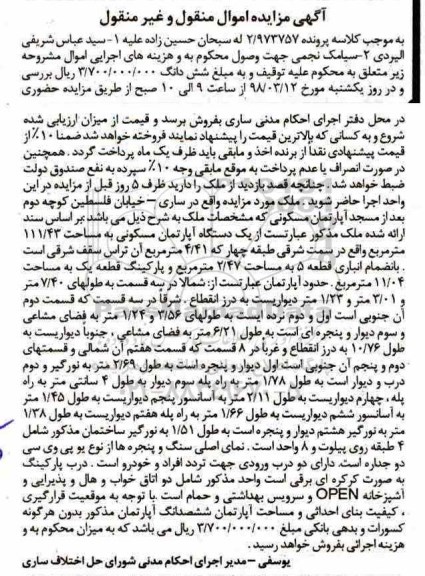 آگهی مزایده اموال منقول و غیر منقول
به موجب کلاسه پرونده ۲/۹۷۳۷۵۷ له سبحان حسین زاده علیه ۱-سید عباس شریفی
الیردی ۲-سیامک نجمی جهت وصول محکوم به و هزینه های اجرایی اموال مشروحه
زیر متعلق به محکوم علیه توقیف و به مبلغ شش دانگ ۳/۷۰۰/۰۰۰/۰۰۰ ریال بررسی
و در روز یکشنبه مورخ ۹۸/۰۳/۱۲ از ساعت ۹ الی ۱۰ صبح از طریق مزایده حضوری
در محل دفتر اجرای احکام مدنی ساری بفروش برسد و قیمت از میزان ارزیابی شده
شروع و به کسانی که بالاترین قیمت را پیشنهاد نمایند فروخته خواهد شد ضمنا ۱۰٪ از
قیمت پیشنهادی نقدا از برنده اخذ و مابقی باید ظرف یک ماه پرداخت گردد . همچنین
در صورت انصراف یا عدم پرداخت به موقع مابقی وجه ۱۰٪ سپرده به نفع صندوق دولت
ضبط خواهد شد . چنانچه قصد بازدید از ملک را دارید ظرف ۵ روز قبل از مزایده در این
واحد اجرا حاضر شوید . ملک مورد مزایده واقع در ساری – خیابان فلسطین کوچه دوم
بعد از مسجد آپارتمان مسکونی که مشخصات ملک به شرح ذیل می باشد :بر اساس سند
ارائه شده ملک مذکور عبارتست از یک دستگاه آپارتمان مسکونی به مساحت ۱۱۱/۴۳
مترمربع واقع در سمت شرقی طبقه چهار که ۴/۴۱ مترمربع آن تراس سقف شرقی است
. بانضمام انباری قطعه ۵ به مساحت ۲/۴۷ مترمربع و پارکینگ قطعه یک به مساحت
۱۱/۰۴ مترمربع . حدود آپارتمان عبارتست از: شمالا در سه قسمت به طولهای ۷/۴۰ متر
و ۳/۰۱ متر و ۱/۲۳ متر دیواریست به درز انقطاع . شرقا در سه قسمت که قسمت دوم
آن جنوبی است اول و دوم نرده ایست به طولهای ۳/۵۶ و ۱/۲۴ متر به فضای مشاعی
و سوم دیوار و پنجره ای است به طول ۶/۲۱ متر به فضای مشاعی . جنوبا دیواریست به
طول ۱۰/۷۶ به درز انقطاع و غربا در ۸ قسمت که قسمت هفتم آن شمالی و قسمتهای
دوم و پنجم آن جنوبی است اول دیوار و پنجره است به طول ۲/۶۹ متر به نورگیر و دوم
درب و دیوار است به طول ۱/۷۸ متر به راه پله سوم دیوار به طول ۴ سانتی متر به راه
پله ، چهارم دیواریست به طول ۲/۱۱ متر به آسانسور پنجم دیواریست به طول ۱/۴۵ متر
به آسانسور ششم دیواریست به طول ۱/۶۶ متر به راه پله هفتم دیواریست به طول ۱/۳۸
متر به نورگیر هشتم دیوار و پنجره است به طول ۱/۵۱ به نورگیر ساختمان مذکور شامل
۴ طبقه روی پیلوت و ۸ واحد است . نمای اصلی سنگ و پنجره ها از نوع یو پی وی سی
دو جداره است. دارای دو درب ورودی جهت تردد افراد و خودرو است . درب پارکینگ
به صورت کرکره ای برقی است واحد مذکور شامل دو اتاق خواب و هال و پذیرایی و
آشپزخانه OPEN و سرویس بهداشتی و حمام است .با توجه به موقعیت قرارگیری
، کیفیت بنای احداثی و مساحت آپارتمان ششصدانگ آپارتمان مذکور بدون هرگونه
کسورات و بدهی بانکی مبلغ ۳/۷۰۰/۰۰۰/۰۰۰ ریال می باشد که به میزان محکوم به و
هزینه اجرائی بفروش خواهد رسید .
یوسفی – مدیر اجرای احکام مدنی شورای حل اختلاف ساری